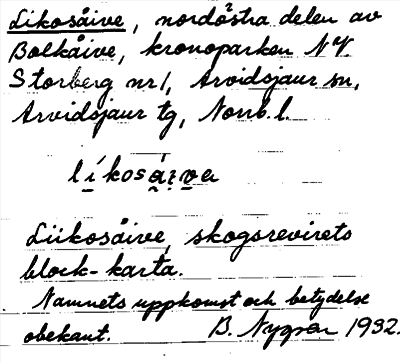 Likosåive, nordöstra delen av
Bolkåive, kronoparken NV.
Storberg nr 1, Arvidsjaur sn,
Arvidsjaur tg, Norrb. l.
líkosái̯va
Liikosåive, skogsrevirets
block-karta.
Namnets uppkomst och betydelse
obekant. B. Nygren 1932.